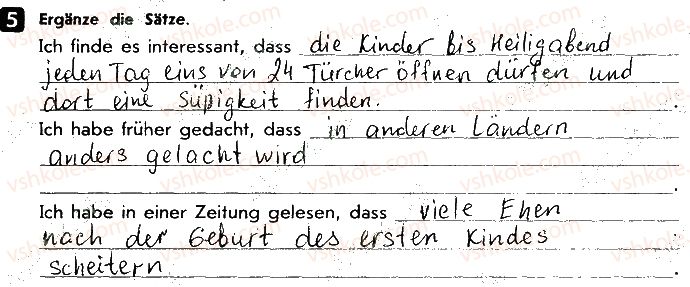 5 Ergänze die Sätze.
Ich finde es interessant, dass die Kinder bis Heiligabend
jeden Tag eins von 24 Türcher öffnen dürfen und
dort eine Süßigkeit finden.
Ich habe früher gedacht, dass in anderen Ländern
anders gelacht wird
.
Ich habe in einer Zeitung gelesen, dass viele Ehen
nach der Geburt des ersten Kindes
scheitern .